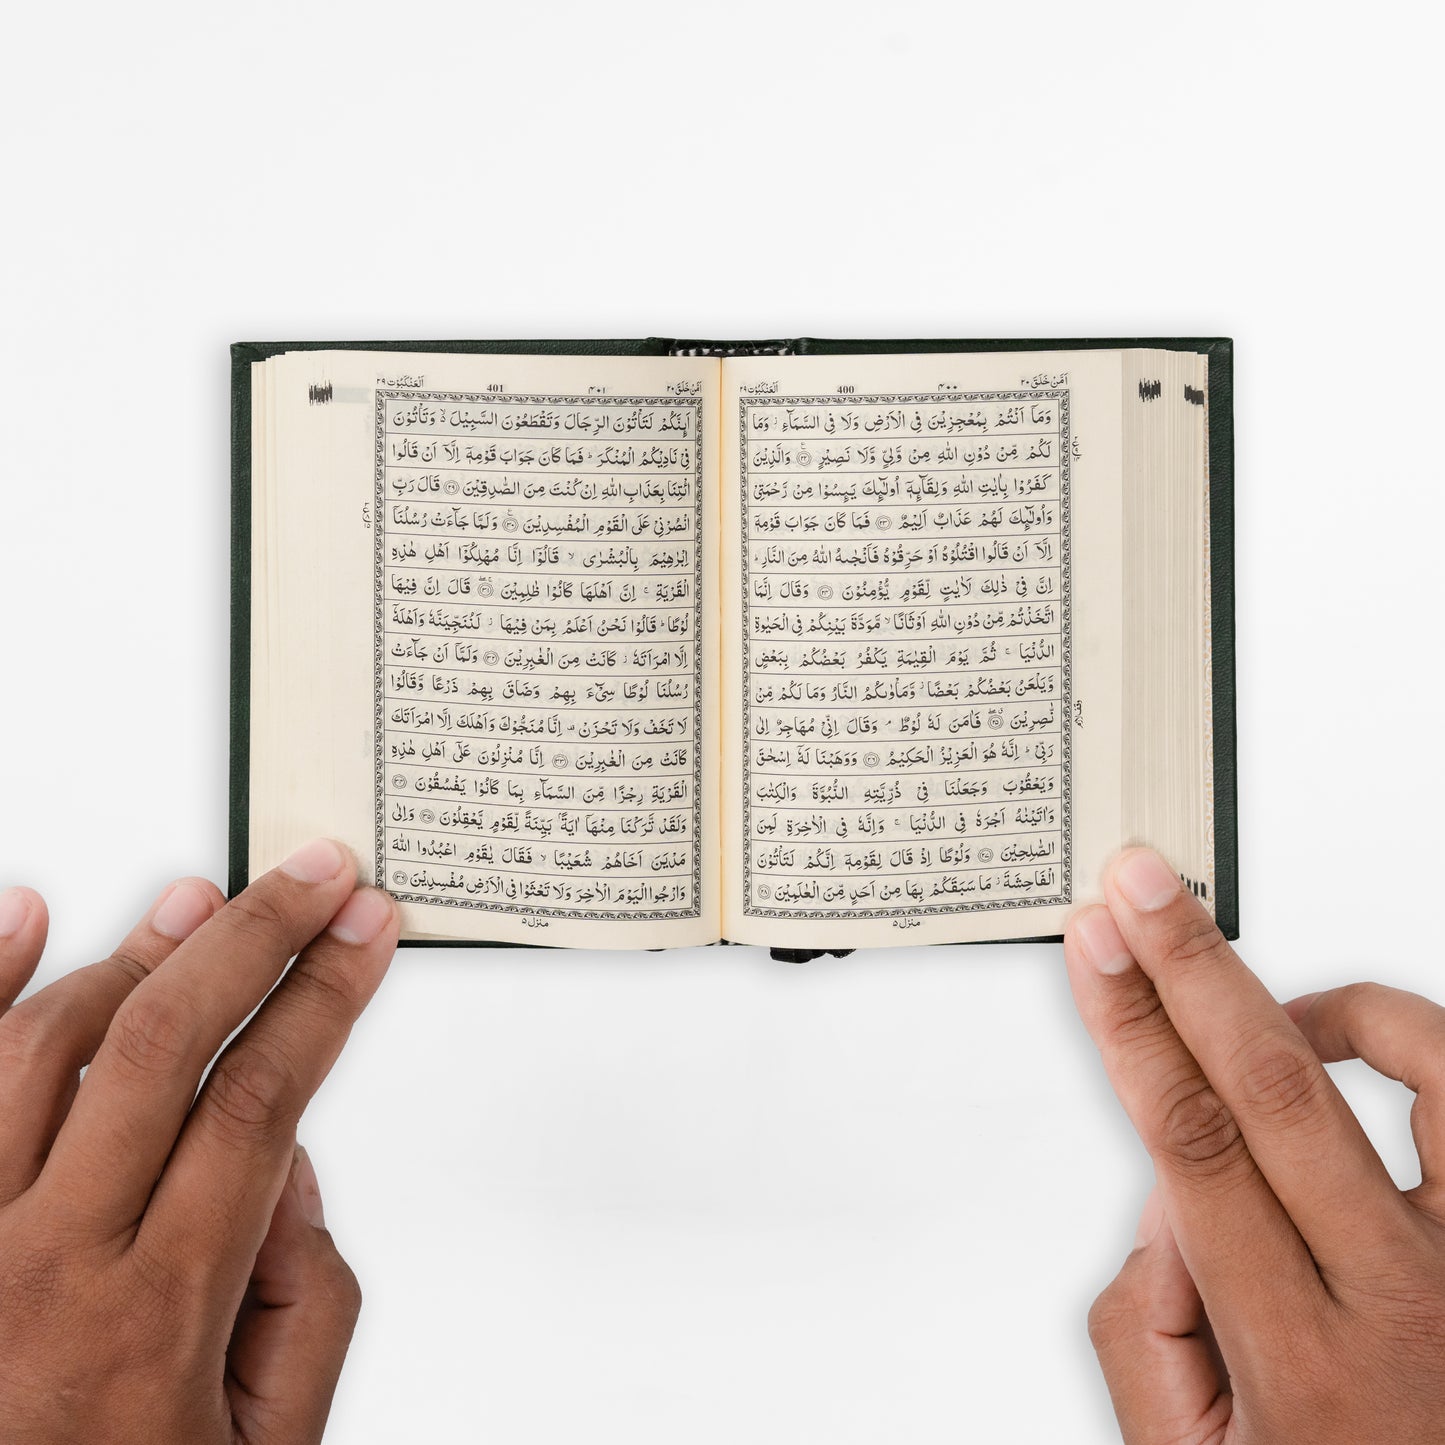 اَمَّنْ خَلَقَ ۲۰
۴۰۰
400
اَلْعَنْكَبُوْت ۲۹
وَمَاۤ اَنْتُمْ بِمُعْجِزِيْنَ فِي الْاَرْضِ وَلَا فِي السَّمَآءِ ؗ وَمَا
لَكُمْ مِّنْ دُوْنِ اللّٰهِ مِنْ وَّلِيٍّ وَّلَا نَصِيْرٍ ۟ۧ۲۲ وَالَّذِيْنَ
كَفَرُوْا بِاٰيٰتِ اللّٰهِ وَلِقَآىِٕهٖۤ اُولٰٓىِٕكَ يَىِٕسُوْا مِنْ رَّحْمَتِيْ
وَاُولٰٓىِٕكَ لَهُمْ عَذَابٌ اَلِيْمٌ ۲۳ فَمَا كَانَ جَوَابَ قَوْمِهٖۤ
اِلَّاۤ اَنْ قَالُوا اقْتُلُوْهُ اَوْ حَرِّقُوْهُ فَاَنْجٰىهُ اللّٰهُ مِنَ النَّارِ ؕ
اِنَّ فِيْ ذٰلِكَ لَاٰيٰتٍ لِّقَوْمٍ يُّؤْمِنُوْنَ ۲۴ وَقَالَ اِنَّمَا
اتَّخَذْتُمْ مِّنْ دُوْنِ اللّٰهِ اَوْثَانًا ۙ مَّوَدَّةَ بَيْنِكُمْ فِي الْحَيٰوةِ
الدُّنْيَا ۚ ثُمَّ يَوْمَ الْقِيٰمَةِ يَكْفُرُ بَعْضُكُمْ بِبَعْضٍ
وَّيَلْعَنُ بَعْضُكُمْ بَعْضًا ؗ وَّمَاْوٰىكُمُ النَّارُ وَمَا لَكُمْ مِّنْ
نّٰصِرِيْنَ ۲۵ فَاٰمَنَ لَهٗ لُوْطٌ ۘ وَقَالَ اِنِّيْ مُهَاجِرٌ اِلٰى
رَبِّيْ ؕ اِنَّهٗ هُوَ الْعَزِيْزُ الْحَكِيْمُ ۲۶ وَوَهَبْنَا لَهٗۤ اِسْحٰقَ
وَيَعْقُوْبَ وَجَعَلْنَا فِيْ ذُرِّيَّتِهِ النُّبُوَّةَ وَالْكِتٰبَ
وَاٰتَيْنٰهُ اَجْرَهٗ فِي الدُّنْيَا ۚ وَاِنَّهٗ فِي الْاٰخِرَةِ لَمِنَ
الصّٰلِحِيْنَ ۲۷ وَلُوْطًا اِذْ قَالَ لِقَوْمِهٖۤ اِنَّكُمْ لَتَاْتُوْنَ
الْفَاحِشَةَ ؗ مَا سَبَقَكُمْ بِهَا مِنْ اَحَدٍ مِّنَ الْعٰلَمِيْنَ ۲۸
منزل ۵
اَمَّنْ خَلَقَ ۲۰
۴۰۱
401
اَلْعَنْكَبُوْت ۲۹
اَىِٕنَّكُمْ لَتَاْتُوْنَ الرِّجَالَ وَتَقْطَعُوْنَ السَّبِيْلَ ۙ۬ وَتَاْتُوْنَ
فِيْ نَادِيْكُمُ الْمُنْكَرَ ؕ فَمَا كَانَ جَوَابَ قَوْمِهٖۤ اِلَّاۤ اَنْ قَالُوا
ائْتِنَا بِعَذَابِ اللّٰهِ اِنْ كُنْتَ مِنَ الصّٰدِقِيْنَ ۲۹ قَالَ رَبِّ
انْصُرْنِيْ عَلَى الْقَوْمِ الْمُفْسِدِيْنَ ۳۰ وَلَمَّا جَآءَتْ رُسُلُنَاۤ
اِبْرٰهِيْمَ بِالْبُشْرٰى ۙ قَالُوْۤا اِنَّا مُهْلِكُوْۤا اَهْلِ هٰذِهِ
الْقَرْيَةِ ۚ اِنَّ اَهْلَهَا كَانُوْا ظٰلِمِيْنَ ۳۱ قَالَ اِنَّ فِيْهَا
لُوْطًا ؕ قَالُوْا نَحْنُ اَعْلَمُ بِمَنْ فِيْهَا ؗ لَنُنَجِّيَنَّهٗ وَاَهْلَهٗۤ
اِلَّا امْرَاَتَهٗ ؗ كَانَتْ مِنَ الْغٰبِرِيْنَ ۳۲ وَلَمَّاۤ اَنْ جَآءَتْ
رُسُلُنَا لُوْطًا سِيْٓءَ بِهِمْ وَضَاقَ بِهِمْ ذَرْعًا وَّقَالُوْا
لَا تَخَفْ وَلَا تَحْزَنْ ۫ اِنَّا مُنَجُّوْكَ وَاَهْلَكَ اِلَّا امْرَاَتَكَ
كَانَتْ مِنَ الْغٰبِرِيْنَ ۳۳ اِنَّا مُنْزِلُوْنَ عَلٰۤى اَهْلِ هٰذِهِ
الْقَرْيَةِ رِجْزًا مِّنَ السَّمَآءِ بِمَا كَانُوْا يَفْسُقُوْنَ ۳۴
وَلَقَدْ تَّرَكْنَا مِنْهَاۤ اٰيَةًۢ بَيِّنَةً لِّقَوْمٍ يَّعْقِلُوْنَ ۳۵ وَاِلٰى
مَدْيَنَ اَخَاهُمْ شُعَيْبًا ۙ فَقَالَ يٰقَوْمِ اعْبُدُوا اللّٰهَ
وَارْجُوا الْيَوْمَ الْاٰخِرَ وَلَا تَعْثَوْا فِي الْاَرْضِ مُفْسِدِيْنَ ۳۶
منزل ۵